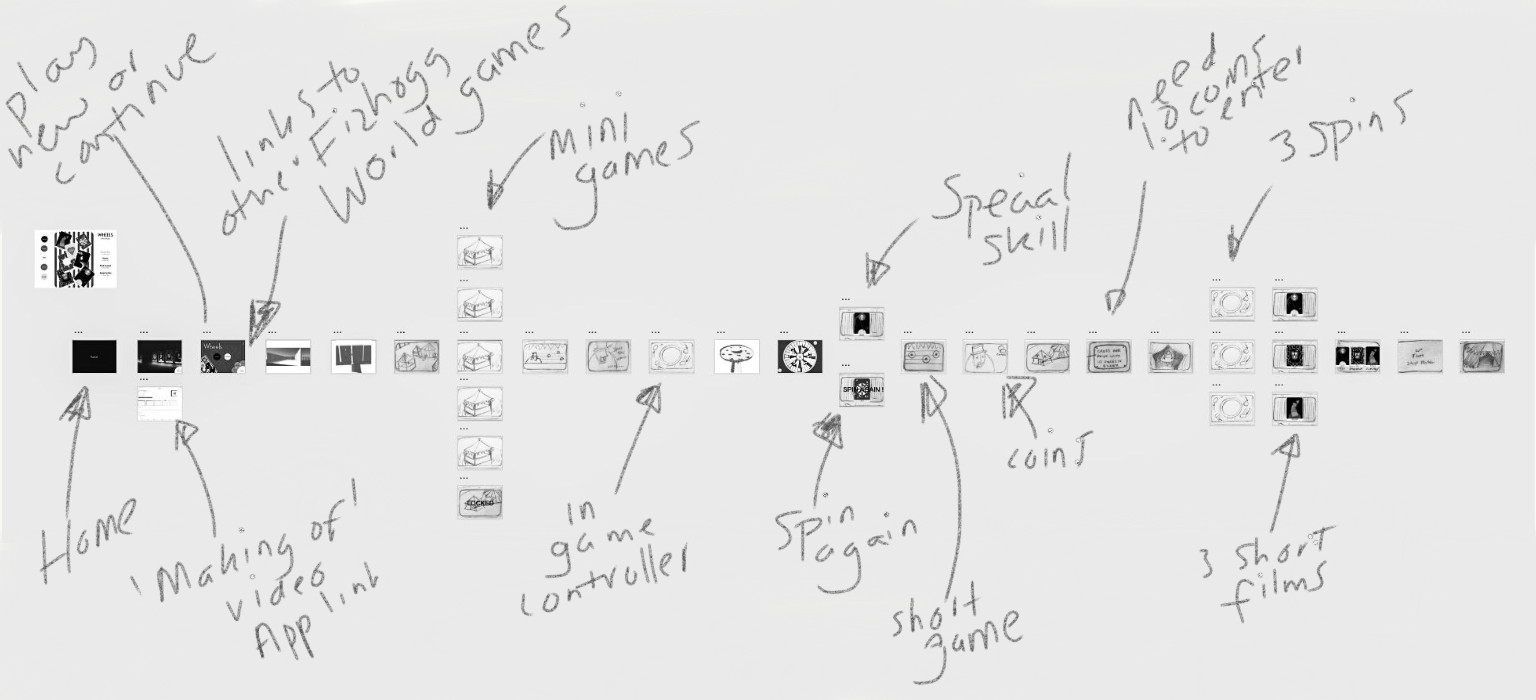 play
new or
continue
links to
other Fizhogg
World games
Mini
games
Special
skill
need
10 coins
to enter
3 Spins
WHEELS
Wheels
SPIN AGAIN!
LOCKED
Home
'Making of'
video
App link
In
game
controller
Spin
again
short
game
coins
3 short
films